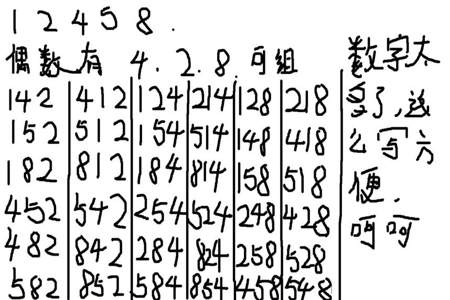 1 2 4 5 8 .
偶数有 4 . 2 . 8 . 可组
142 412 124 214 128 218
152 512 154 514 148 418
182 812 184 814 158 518
452 542 254 524 248 428
482 842 284 824 258 528
582 852 584 854 458 548
数字太
多了,这
么写方
便.
呵呵